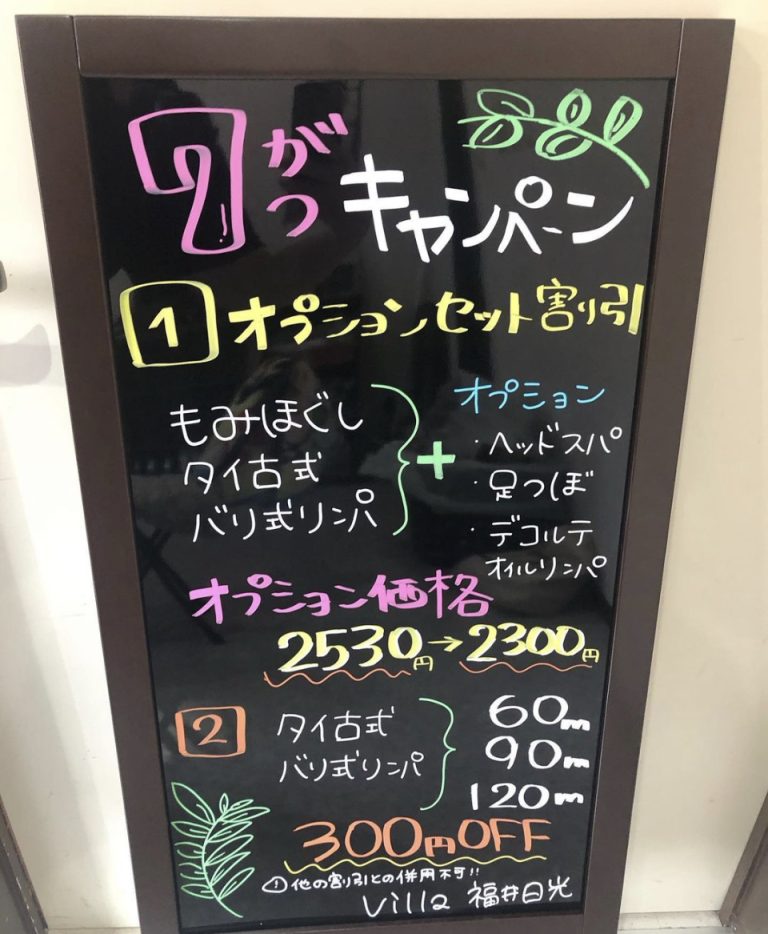 7がつ キャンペーン
1 オプションセット割り引
もみほぐし
タイ古式
バリ式リンパ
+
オプション
・ヘッドスパ
・足つぼ
・デコルテ
オイルリンパ
オプション価格
2530円→2300円
2 タイ古式
バリ式リンパ
60m
90m
120m
300円OFF
! 他の割引との併用不可!!
Villa 福井日光